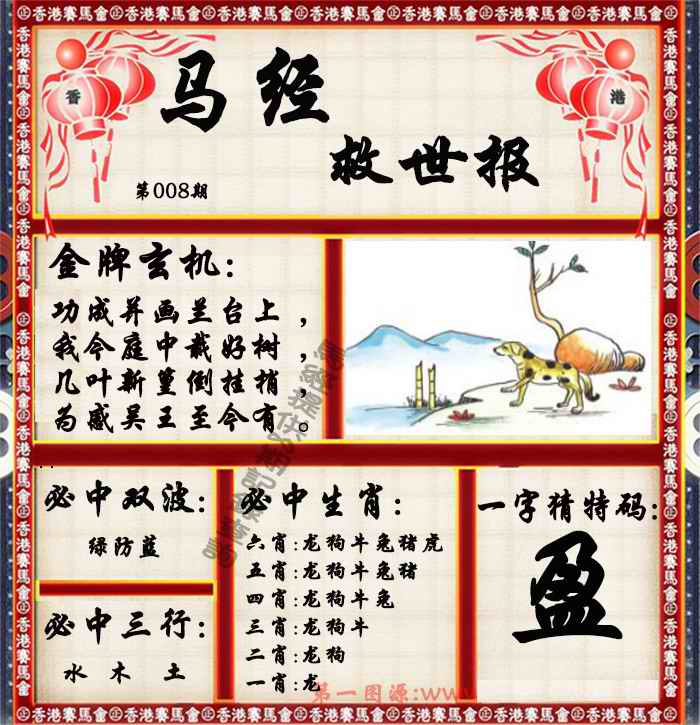 香港賽馬會
香
港
马经
救世报
第008期
金牌玄机:
功成并画兰台上，
我今庭中栽好树，
几叶新篁倒挂梢，
为感吴王至今有。
必中双波:
绿防蓝
必中三行:
水 木 土
必中生肖:
六肖:龙狗牛兔猪虎
五肖:龙狗牛兔猪
四肖:龙狗牛兔
三肖:龙狗牛
二肖:龙狗
一肖:龙
一字猜特码:
盈
第一图源:www